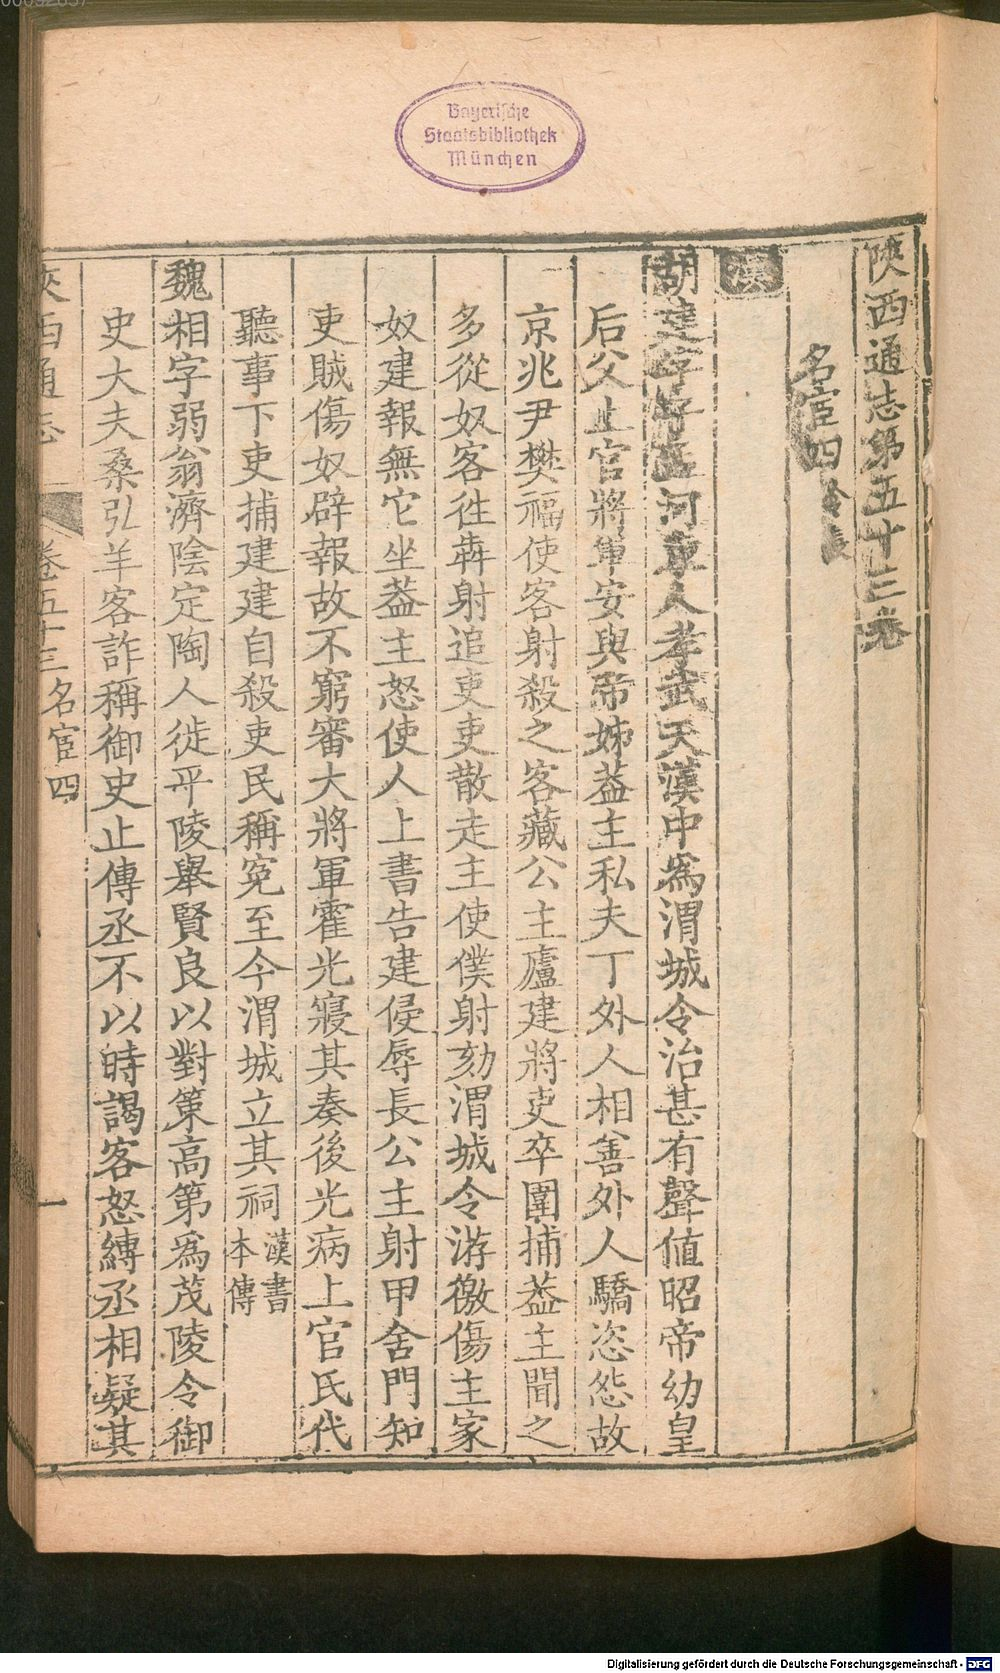 Bayerische
Staatsbibliothek
München
陝西通志第五十三卷
名宦四 令長
漢
胡建字子孟河東人孝武天漢中爲渭城令治甚有聲値昭帝幼皇
后父上官將軍安與帝姊葢主私夫丁外人相善外人驕恣怨故
京兆尹樊福使客射殺之客藏公主廬建將吏卒圍捕葢主聞之
多從奴客徃犇射追吏吏散走主使僕射刻渭城令游徼傷主家
奴建報無它坐葢主怒使人上書告建侵辱長公主射甲舍門知
吏賊傷奴辟報故不窮審大將軍霍光寢其奏後光病上官氏代
聽事下吏捕建建自殺吏民稱冤至今渭城立其祠 漢書本傳
魏相字弱翁濟陰定陶人徙平陵舉賢良以對策高第爲茂陵令御
史大夫桑弘羊客詐稱御史止傳丞不以時謁客怒縛丞相疑其
陝西通志 卷五十三 名宦四 一
Digitalisierung gefördert durch die Deutsche Forschungsgemeinschaft - DFG